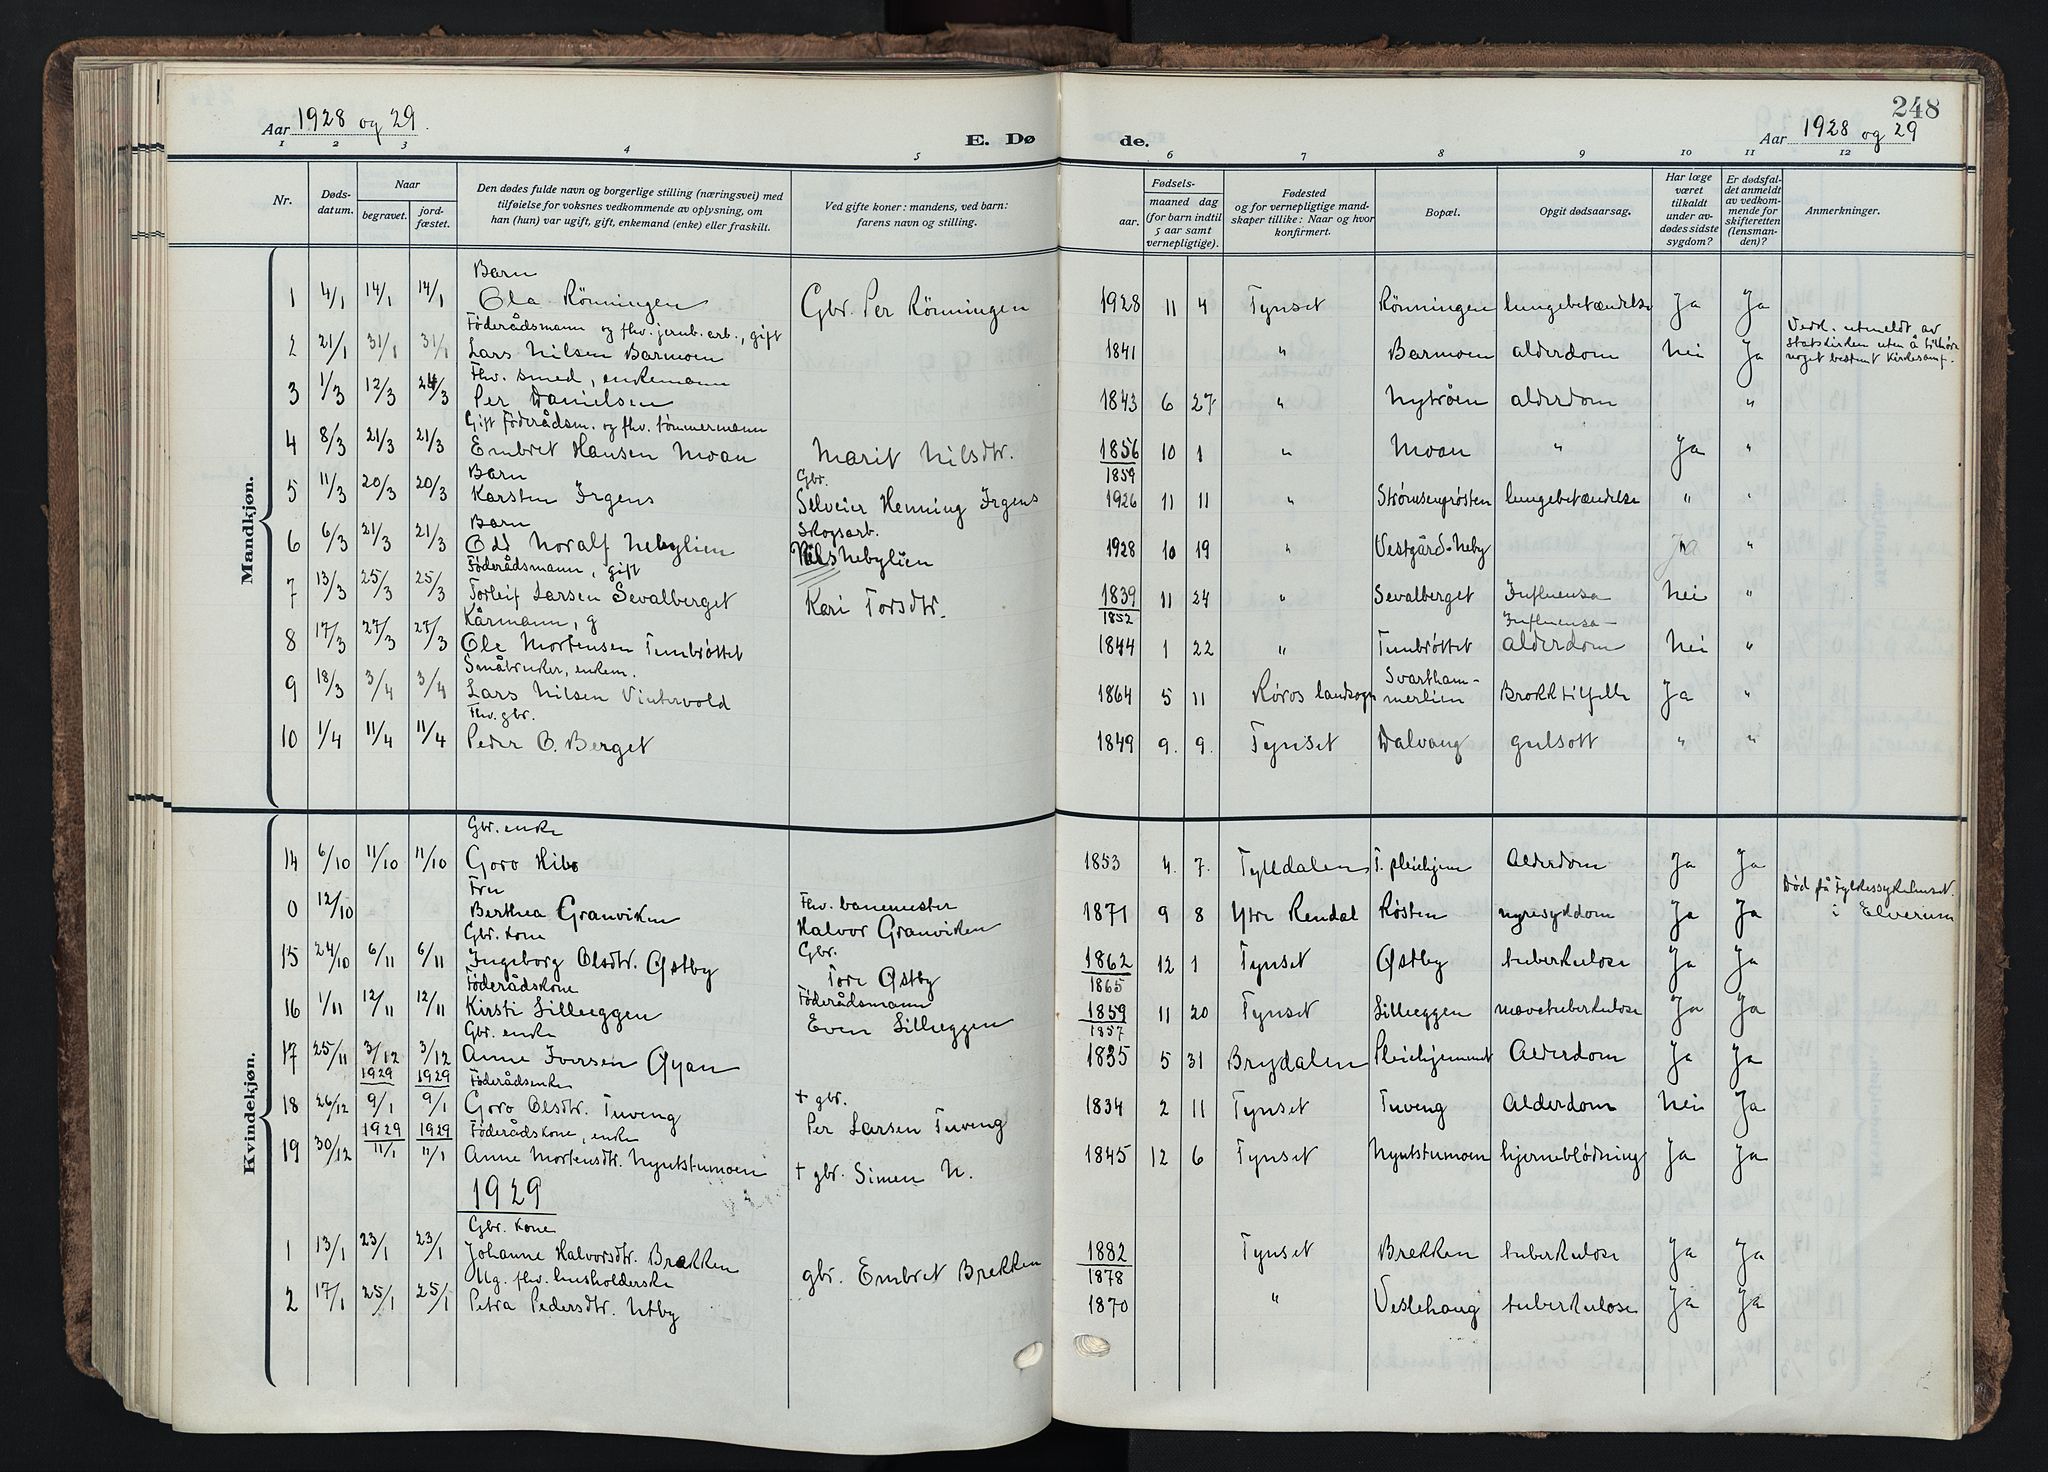 248
Aar 1928 og 29.
E. Dø de.
Aar 1928 og 29
1 2 3 4 5 6 7 8 9 10 11 12
Nr.
Døds-
datum.
Naar
begravet.
jord-
fæstet.
Den dødes fulde navn og borgerlige stilling (næringsvei) med
tilføielse for voksnes vedkommende av oplysning, om
han (hun) var ugift, gift, enkemand (enke) eller fraskilt.
Ved gifte koner: mandens, ved barn:
farens navn og stilling.
Fødsels-
aar.
maaned dag
(for barn indtil
5 aar samt
vernepligtige).
Fødested
og for vernepligtige mand-
skaper tillike: Naar og hvor
konfirmert.
Bopæl.
Opgit dødsaarsag.
Har læge
været
tilkaldt
under av-
dødes sidste
sygdom?
Er dødsfal-
det anmeldt
av vedkom-
mende for
skifteretten
(lensman-
den)?
Anmerkninger.
Mandkjøn.
Barn
1 4/1 14/1 14/1 Ola Rönningen Gbr. Per Rönningen 1928 11 4 Tynset Rönningen lungebetændelse Ja Ja
Föderådsmann og fhv. jernb. arb., gift
2 21/1 31/1 31/1 Lars Nilsen Barmoen 1841 " Barmoen alderdom Nei Ja
Vedk. utmeldt av
statskirken uten å tilhöre
noget bestemt kirkesamf.
Fhv. smed, enkemann
3 1/3 12/3 24/3 Per Danielsen 1843 6 27 " Nytrøen alderdom "
Gift föderådsm. og fhv. tömmermann
4 8/3 21/3 21/3 Embret Hansen Moan Marit Nilsdtr. 1856 10 1 " Moan " Ja "
1859
Barn Gbr.
5 11/3 20/3 20/3 Karsten Irgens Selveier Henning Irgens 1926 11 11 " Strømsengrøsten lungebetændelse " "
Barn Skogsarb.
6 6/3 21/3 21/3 Odd Noralf Nebylien Nils Nebylien 1928 10 19 " Vestgård-Neby Ja "
Föderådsmann, gift
7 13/3 25/3 25/3 Torleif Larsen Sevalberget Kari Torsdtr. 1839 11 24 " Sevalberget Influensa Nei "
1852
Kårmann, g Influensa-
8 17/3 27/3 27/3 Ole Mortensen Tunbrøttet 1844 1 22 " Tunbrøttet alderdom Nei "
Småbruker, enkem.
9 18/3 3/4 3/4 Lars Nilsen Vintervold 1864 5 11 Røros landsogn Svartham-
merlien Brokktilfelle Ja "
Fhv. gbr.
10 1/4 11/4 11/4 Peder O. Berget 1849 9. 9. Tynset Dalvang gulsott " "
Kvindekjøn.
Gbr. enke
14 6/10 11/10 11/10 Goro Hibo 1853 4. 7. Tylldalen T. pleiehjem Alderdom Ja Ja
Fru Fhv. banemester
0 12/10 Berthea Granviken Halvor Granviken 1871 9 8 Ytre Rendal Røsten nyresykdom Ja Ja
Død på Fylkessykehuset
i Elverum
Gbr. kone Gbr.
15 24/10 6/11 6/11 Ingeborg Olsdtr. Østby Tore Østby 1862 12 1 Tynset Østby tuberkulose Ja Ja
1865
Föderådskone Föderådsmann
16 1/11 12/11 12/11 Kirsti Lilleeggen Even Lilleeggen 1859 11 20 Tynset Lilleeggen mavetuberkulose Ja Ja
1857
Gbr. enke
17 25/11 3/12 3/12 Anne Iversen Øyan 1835 5 31 Brydalen Pleiehjemmet Alderdom Ja Ja
1929 1929 Föderådsenke
18 26/12 9/1 9/1 Goro Olsdtr. Tuveng + gbr.
Per Larsen Tuveng 1834 2 11 Tynset Tuveng Alderdom Nei Ja
1929 1929 Föderådskone, enke
19 30/12 11/1 11/1 Anne Mortensdtr. Nyutstumoen + gbr. Simen N. 1845 12 6 Tynset Nyutstumoen hjerneblødning Ja Ja
1929
Gbr. kone
1 13/1 23/1 23/1 Johanne Halvorsdtr. Brekken gbr. Embret Brekken 1882 Tynset Brekken tuberkulose Ja Ja
1878
Ug. fhv. husholderske
2 17/1 25/1 25/1 Petra Pedersdtr. Utby 1870 " Veslehaug tuberkulose Ja Ja